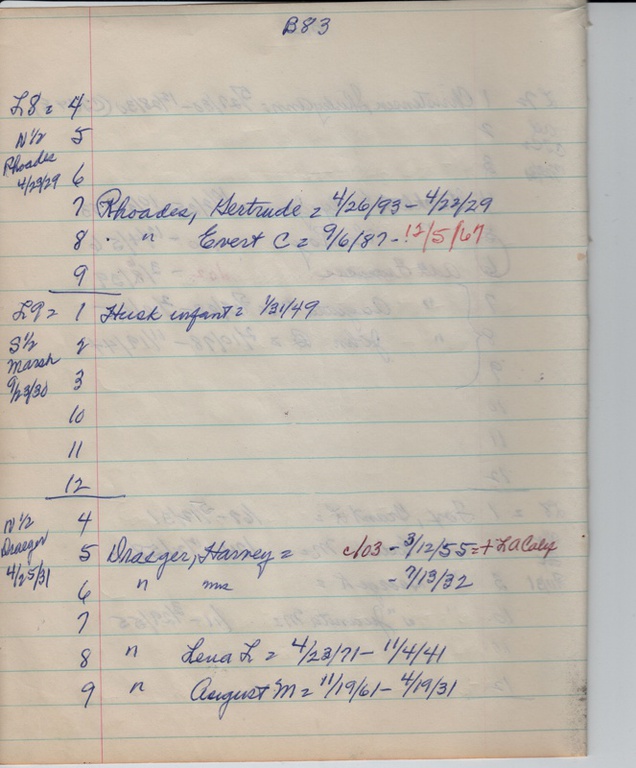 B83
L8 = 4
N 1/2 5
Rhoades 6
4/29/29
7 Rhoades, Gertrude = 4/26/93 - 4/22/29
8 " Evert C = 9/6/87 - 12/5/67
9
L9 = 1 Husk infant = 1/31/49
S 1/2 2
Marsh 3
9/23/30
10
11
12
N 1/2 4
Draeger 5 Draeger, Harvey = c/o3 - 3/12/55 = + LA Calif
4/25/31 6 " mrs - 7/13/32
7
8 " Lena L = 4/23/71 - 11/4/41
9 " August M = 11/19/61 - 4/19/31